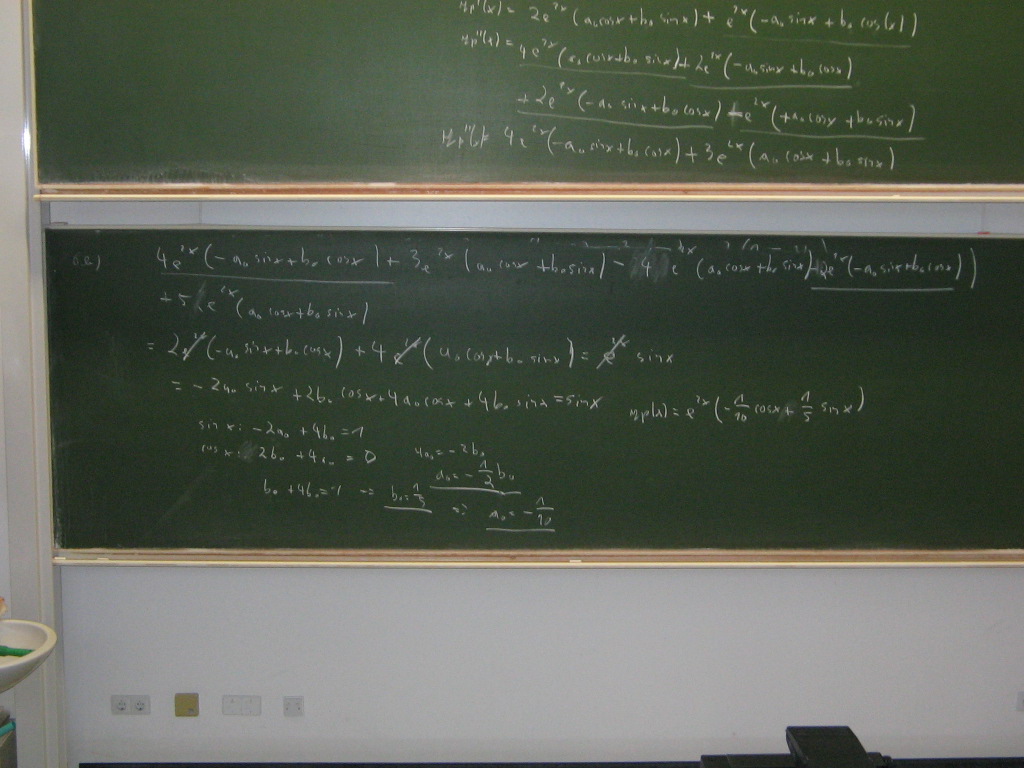 yp'(x) = 2e^{2x}(a₀cosx+b₀ sinx) + e^{2x}(-a₀ sinx + b₀ cos(x))
yp''(x) = 4e^{2x}(a₀ cosx+b₀ sinx)+2e^{2x}(-a₀sinx+b₀cosx)
+2e^{2x}(-a₀ sinx+b₀cosx) - e^{2x}(+a₀cosx+b₀sinx)
yp''( ) 4e^{2x}(-a₀ sinx+b₀ cosx)+3e^{2x}(a₀ cosx+b₀ sinx)
4e^{2x}(-a₀ sinx+b₀ cosx)+3e^{2x}(a₀ cosx+b₀sinx) - e^{2x}(a₀cosx+b₀ sinx)+2e^{2x}(-a₀sinx+b₀cosx))
+5 e^{2x}(a₀ cosx+b₀ sinx)
= 2e^{2x}(-a₀ sinx+b₀ cosx) + 4e^{2x}(a₀ cosx+b₀ sinx) = e^{2x} sinx
= -2a₀ sinx +2b₀ cosx+4a₀cosx + 4b₀ sinx = sinx
yp(x) = e^{2x}(-1/10 cosx + 1/5 sinx)
sin x: -2a₀ +4b₀ = 1
cos x: 2b₀ +4a₀ = 0 4a₀ = -2b₀
a₀ = -1/2 b₀
b₀ +4b₀ = 1 => b₀ = 1/5 => a₀ = -1/10